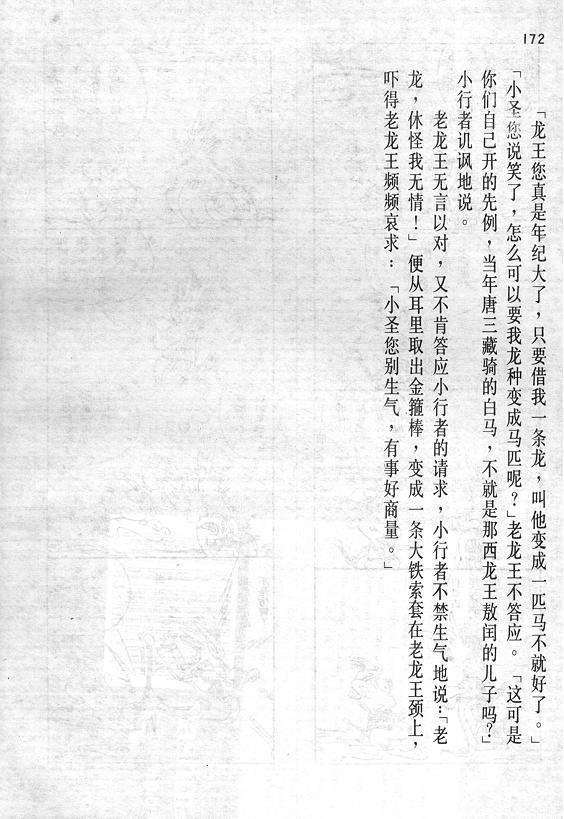 172
「龙王您真是年纪大了，只要借我一条龙，叫他变成一匹马不就好了。」
「小圣您说笑了，怎么可以要我龙种变成马匹呢？」老龙王不答应。「这可是
你们自己开的先例，当年唐三藏骑的白马，不就是那西龙王敖闰的儿子吗？」
小行者讥讽地说。
老龙王无言以对，又不肯答应小行者的请求，小行者不禁生气地说：「老
龙，休怪我无情！」便从耳里取出金箍棒，变成一条大铁索套在老龙王颈上，
吓得老龙王频频哀求：「小圣您别生气，有事好商量。」